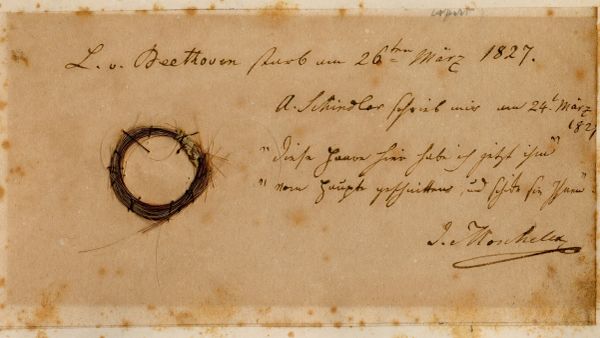 L. v. Beethoven starb am 26ten März 1827.
A. Schindler schrieb mir am 24t März
1827
"diese Haare hier habe ich jetzt ihm"
"vom Haupte geschnitten, und schicke sie Ihnen".
I. Moscheles